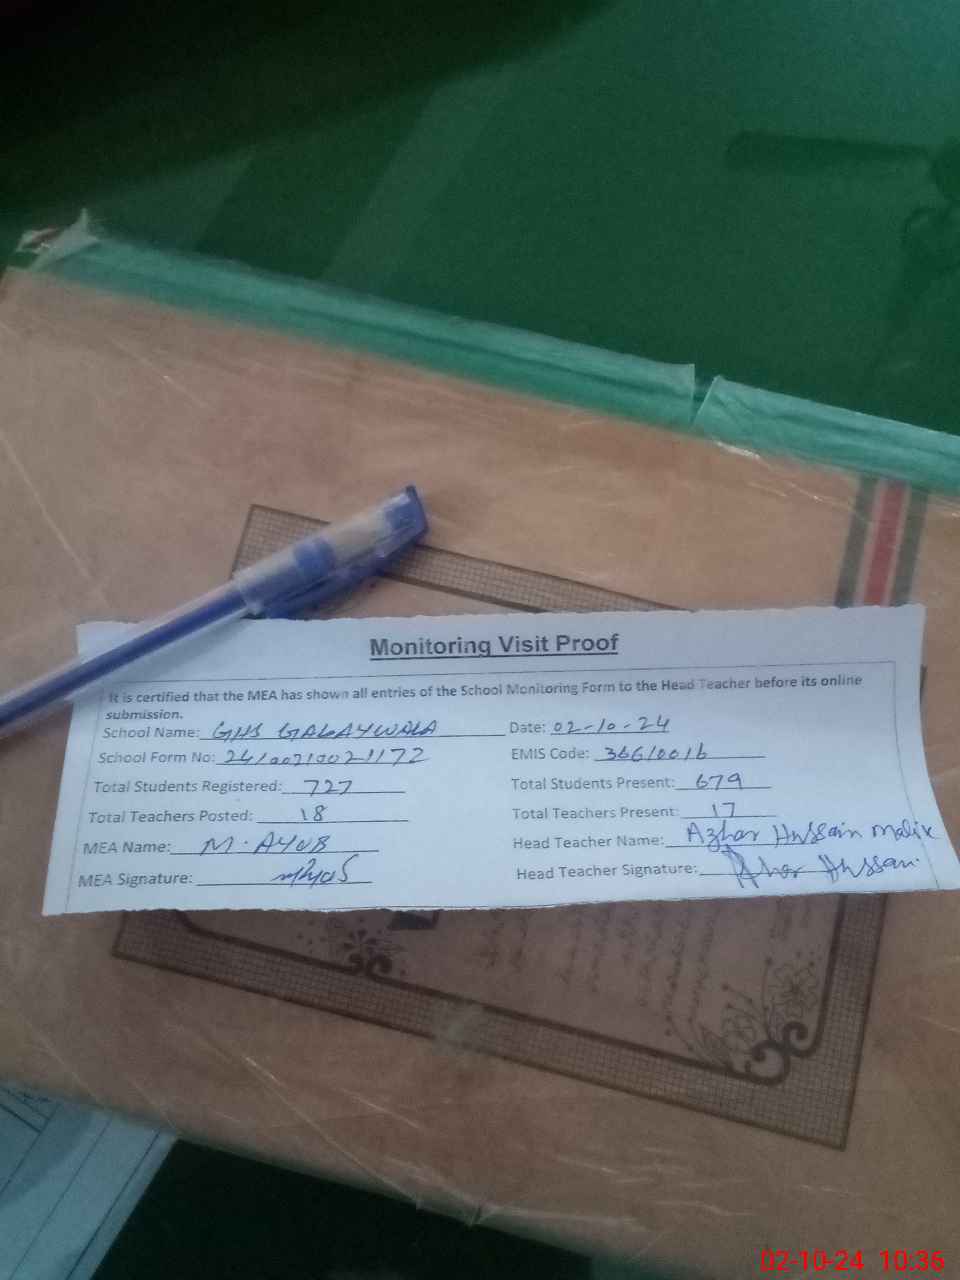 Monitoring Visit Proof
It is certified that the MEA has shown all entries of the School Monitoring Form to the Head Teacher before its online
submission.
School Name: GHS GALAYWALA Date: 02-10-24
School Form No: EMIS Code: 36610016
Total Students Registered: 727 Total Students Present: 679
Total Teachers Posted: 18 Total Teachers Present: 17
MEA Name: M. AYUB Head Teacher Name: Azhar Hussain Malik
MEA Signature: Head Teacher Signature: Azhar Hussan.
02-10-24 10:36